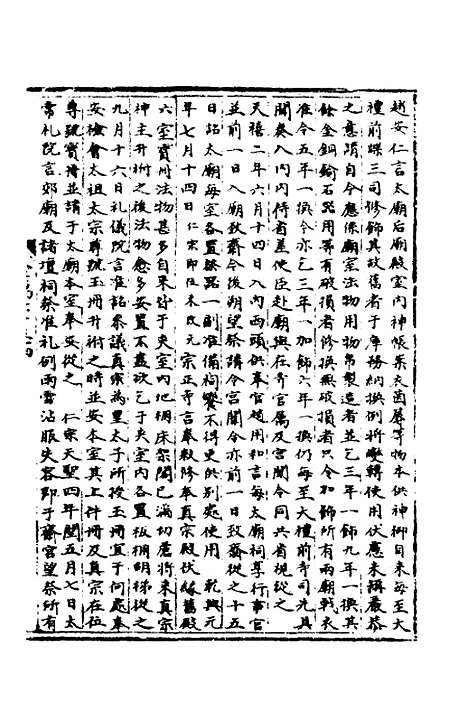 趙安仁言太廟后廟殿室內神帳案衣茵蓐等物本供神御自來每至大
禮前牒三司修飾其故舊者于庫務納換例將轉使用伏慮未稱嚴恭
之意請自今應係廟室法物用物帛製造者並乞三年一飾九年一換其
餘金銅鍮石器用等有破損者修換無破損者只令和飾所有兩廟戟衣
準令五年一換今亦乞三年一加飾六年一換仍每至大禮前寺司先具
聞奏入內內侍省差使臣赴廟與在寺官屬及宮闈令同共省視從之
天禧二年六月十四日入內內西頭供奉官趙用和言每太廟祠享行事官
並前一日入廟致齋令後朔望祭請令宮闈令亦前一日致齋從之十五
日詔太廟每室各置祭器一副準備祠饗不得更供別處使用 乾興元
年七月十四日仁宗即位未改元宗正寺言奉敕修奉真宗殿伏緣舊殿
六室寶冊法物甚多自來皆于夾室內地棚床架閣已滿切慮將來真宗
神主升祔之後法物愈多安置不盡欲乞于夾室內各置板棚胡梯從之
九月十六日禮儀院言准詔參議真宗為皇太子所授玉冊宜于何處奉
安檢會太祖太宗尊號玉冊升祔之時並安本室其上件冊及真宗在位
尊號寶冊並請于太廟本室奉安從之 仁宗天聖四年閏五月七日太
常禮院言郊廟及諸壇祠祭准禮例雨霑沾服失容即于齋宮望祭所有